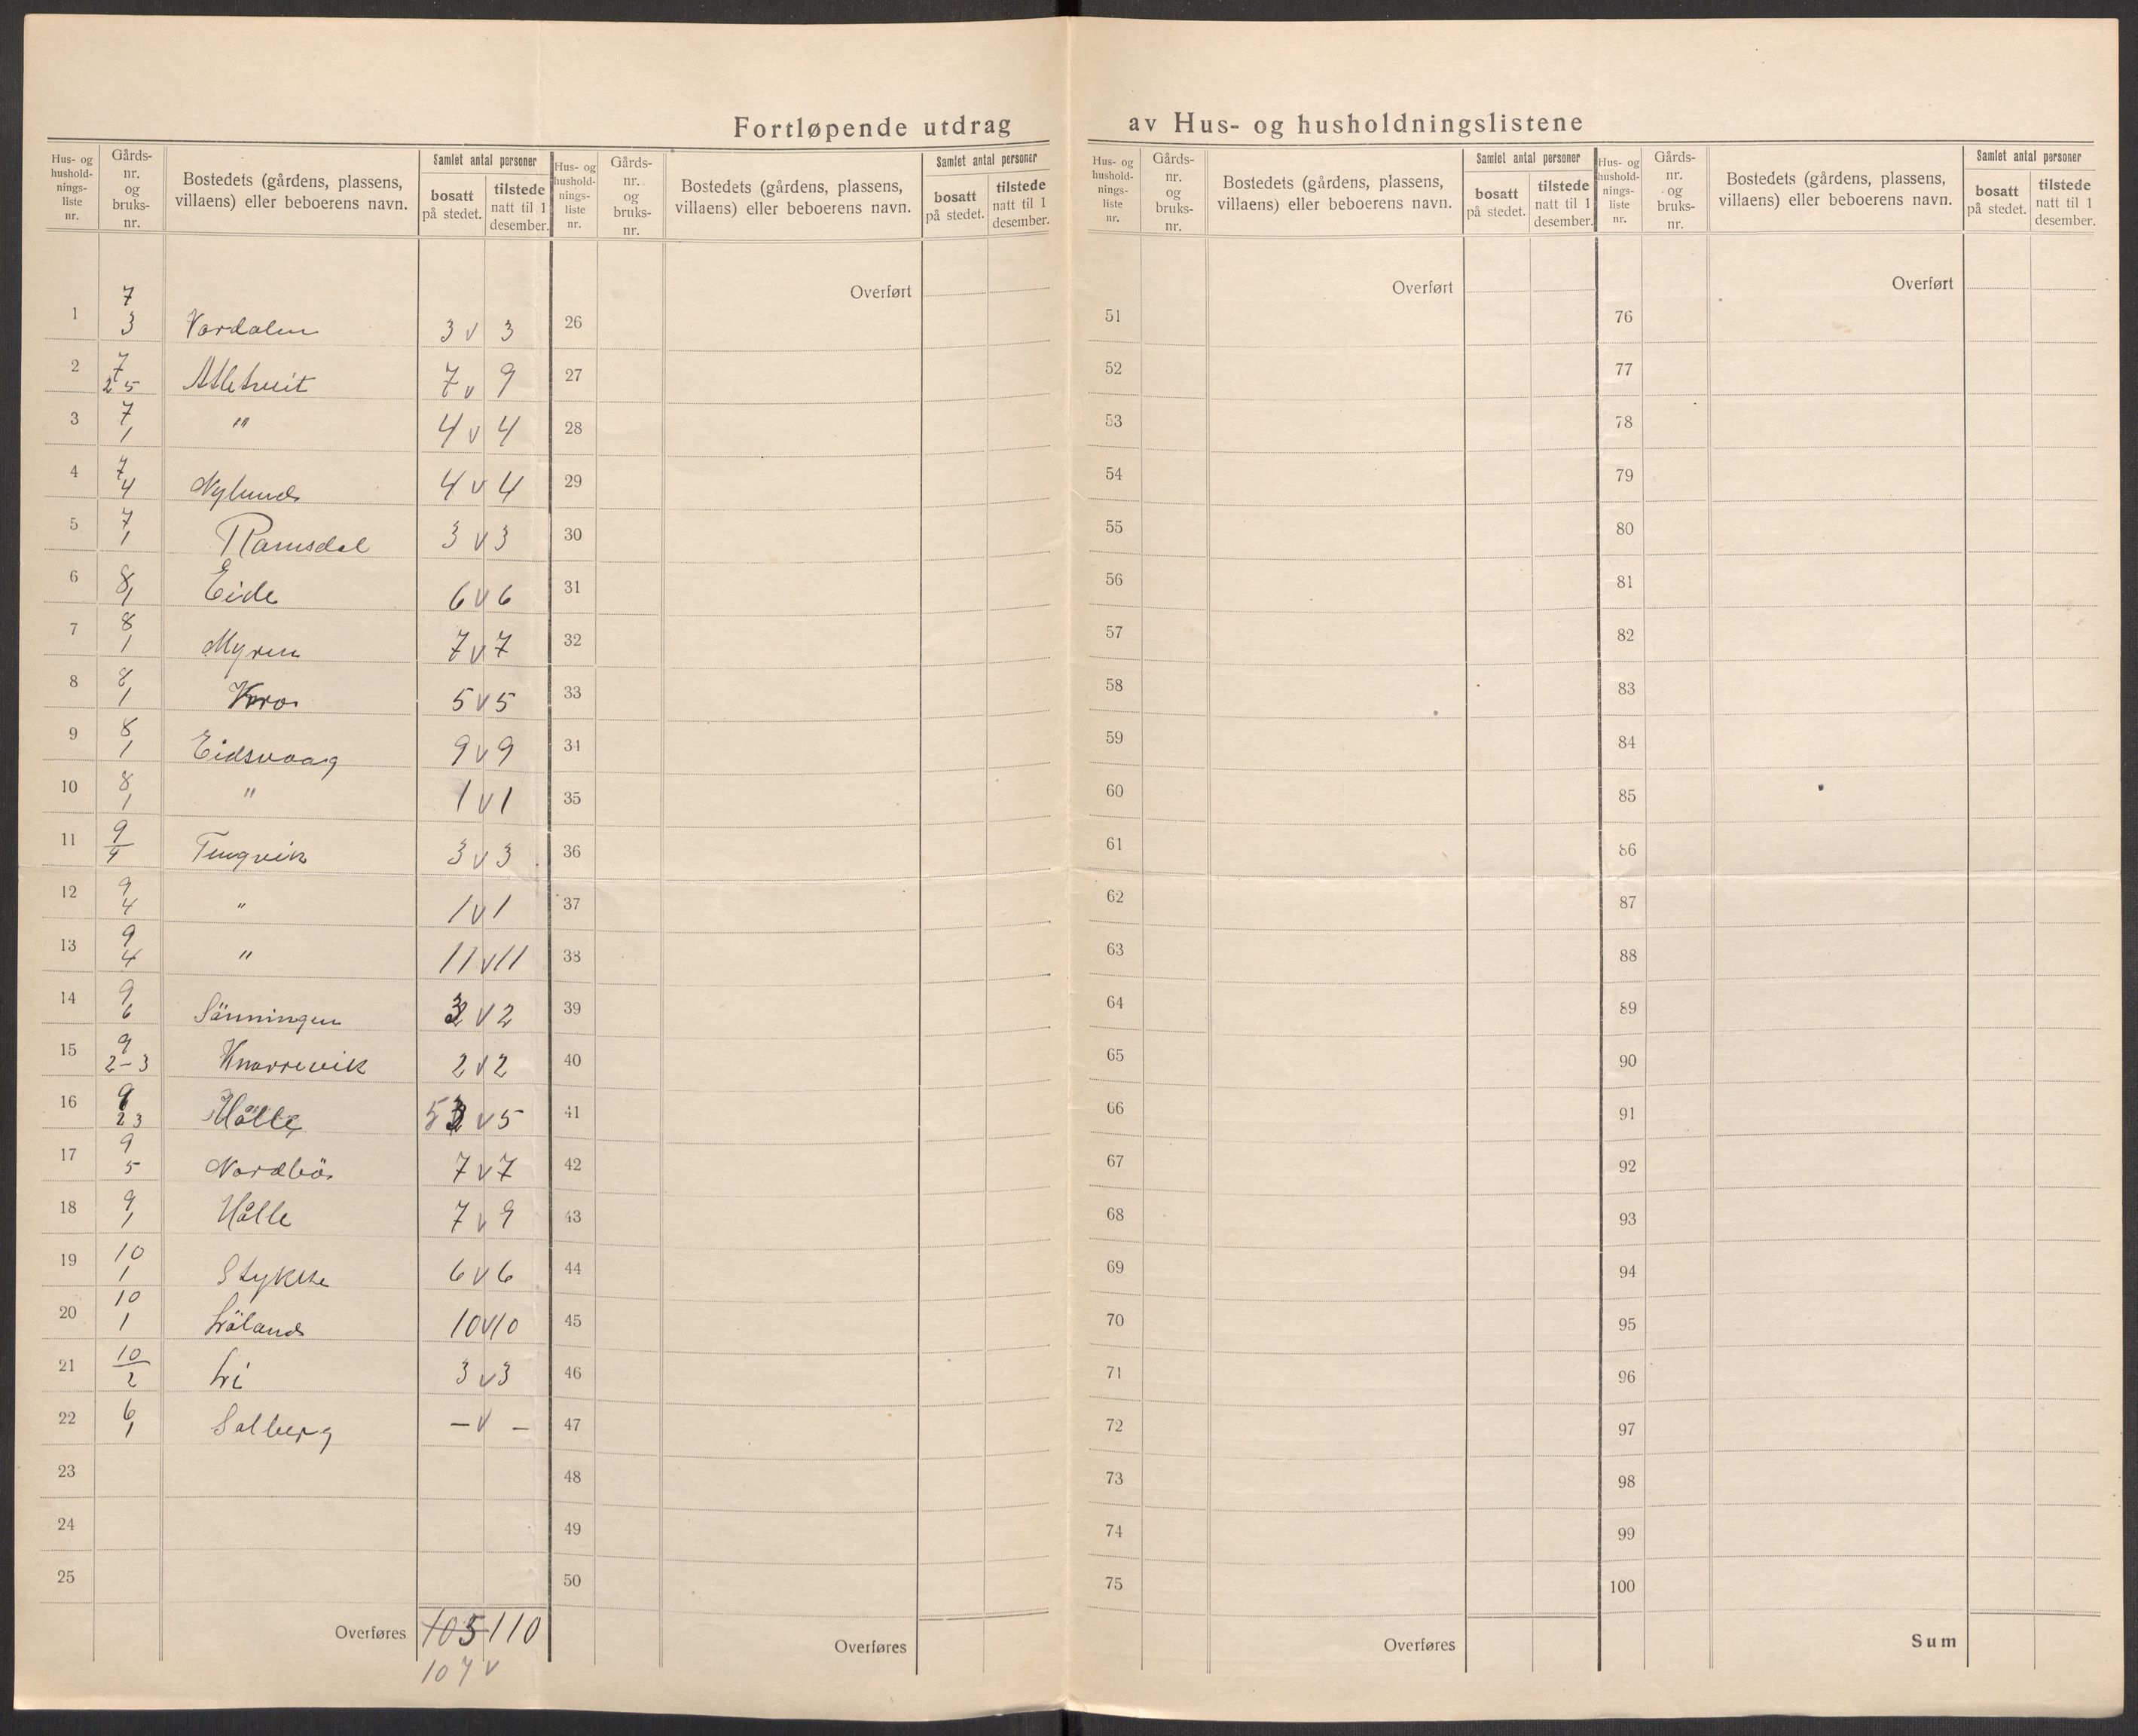 Fortløpende utdrag av Hus- og husholdningslistene
Hus- og hushold-nings-liste nr. | Gårds-nr. og bruks-nr. | Bostedets (gårdens, plassens, villaens) eller beboerens navn. | Samlet antal personer | bosatt på stedet. | tilstede natt til 1 desember.
Hus- og hushold-nings-liste nr. | Gårds-nr. og bruks-nr. | Bostedets (gårdens, plassens, villaens) eller beboerens navn. | Samlet antal personer | bosatt på stedet. | tilstede natt til 1 desember.
Hus- og hushold-nings-liste nr. | Gårds-nr. og bruks-nr. | Bostedets (gårdens, plassens, villaens) eller beboerens navn. | Samlet antal personer | bosatt på stedet. | tilstede natt til 1 desember.
Hus- og hushold-nings-liste nr. | Gårds-nr. og bruks-nr. | Bostedets (gårdens, plassens, villaens) eller beboerens navn. | Samlet antal personer | bosatt på stedet. | tilstede natt til 1 desember.
1 7/3 Vardalen 3 v 3
2 7/2 5 7 v 9
3 7/1 " 4 v 4
4 7/4 Nylund 4 v 4
5 7/1 Ramsdal 3 v 3
6 8/1 Eide 6 v 6
7 8/1 Myren 7 v 7
8 8/1 5 v 5
9 8/1 Eidsvaag 9 v 9
10 8/1 " 1 v 1
11 9/4 Tingvik 3 v 3
12 9/4 " 1 v 1
13 9/4 " 11 v 11
14 9/6 Sänningen 3 v 2
15 9/2-3 Knarrevik 2 v 2
16 9/2 3 Hålle 5 v 5
17 9/5 Nordbö 7 v 7
18 9/1 Hålle 7 v 9
19 10/1 Stykke 6 v 6
20 10/1 10 v 10
21 10/2 Li 3 v 3
22 6/1 Salberg – v –
23
24
25
Overføres 105 110
107 v
Overført
26
27
28
29
30
31
32
33
34
35
36
37
38
39
40
41
42
43
44
45
46
47
48
49
50
Overføres
Overført
51
52
53
54
55
56
57
58
59
60
61
62
63
64
65
66
67
68
69
70
71
72
73
74
75
Overføres
Overført
76
77
78
79
80
81
82
83
84
85
86
87
88
89
90
91
92
93
94
95
96
97
98
99
100
Sum